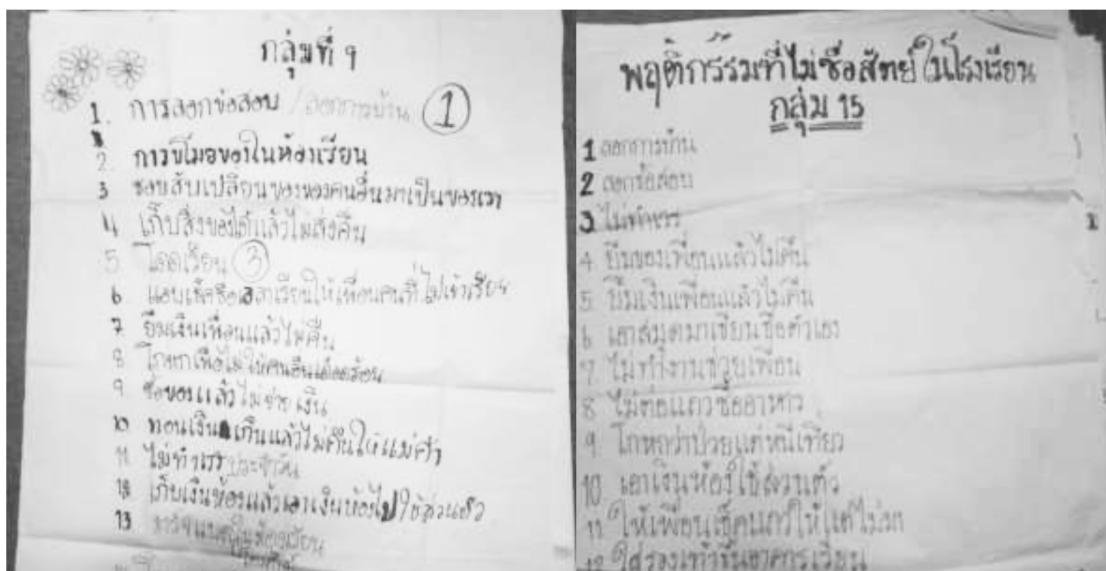 กลุ่มที่ 9
1. การลอกข้อสอบ / ลอกการบ้าน 1
2. การขโมยของในห้องเรียน
3 ชอบสับเปลี่ยนของของคนอื่นมาเป็นของเรา
4 เก็บสิ่งของได้แล้วไม่ส่งคืน
5 โดดเรียน 3
6 แอบเช็คชื่อเวลาเรียนให้เพื่อนคนที่ไม่เข้าเรียน
7 ยืมเงินเพื่อนแล้วไม่คืน
8 โกหกเพื่อไม่ให้คนอื่นเดือดร้อน
9 ซื้อของแล้วไม่จ่ายเงิน
10 ทอนเงินเกินแล้วไม่คืนให้แม่ค้า
11 ไม่ทำเวรประจำวัน
12 เก็บเงินห้องแล้วเอาเงินห้องไปใช้ส่วนตัว
13
พฤติกรรมที่ไม่ซื่อสัตย์ในโรงเรียน
กลุ่ม 15
1 ลอกการบ้าน
2 ลอกข้อสอบ
3 ไม่ทำเวร
4 ยืมของเพื่อนแล้วไม่คืน
5 ยืมเงินเพื่อนแล้วไม่คืน
6 เอาสมุดมาเขียนชื่อตัวเอง
7 ไม่ทำงานช่วยเพื่อน
8 ไม่ต่อแถวซื้ออาหาร
9 โกหกว่าป่วยแต่หนีเที่ยว
10 เอาเงินห้องใช้ส่วนตัว
11 ให้เพื่อนเช็คแถวให้แต่ไม่มา
12 ใส่รองเท้าขึ้นอาคารเรียน